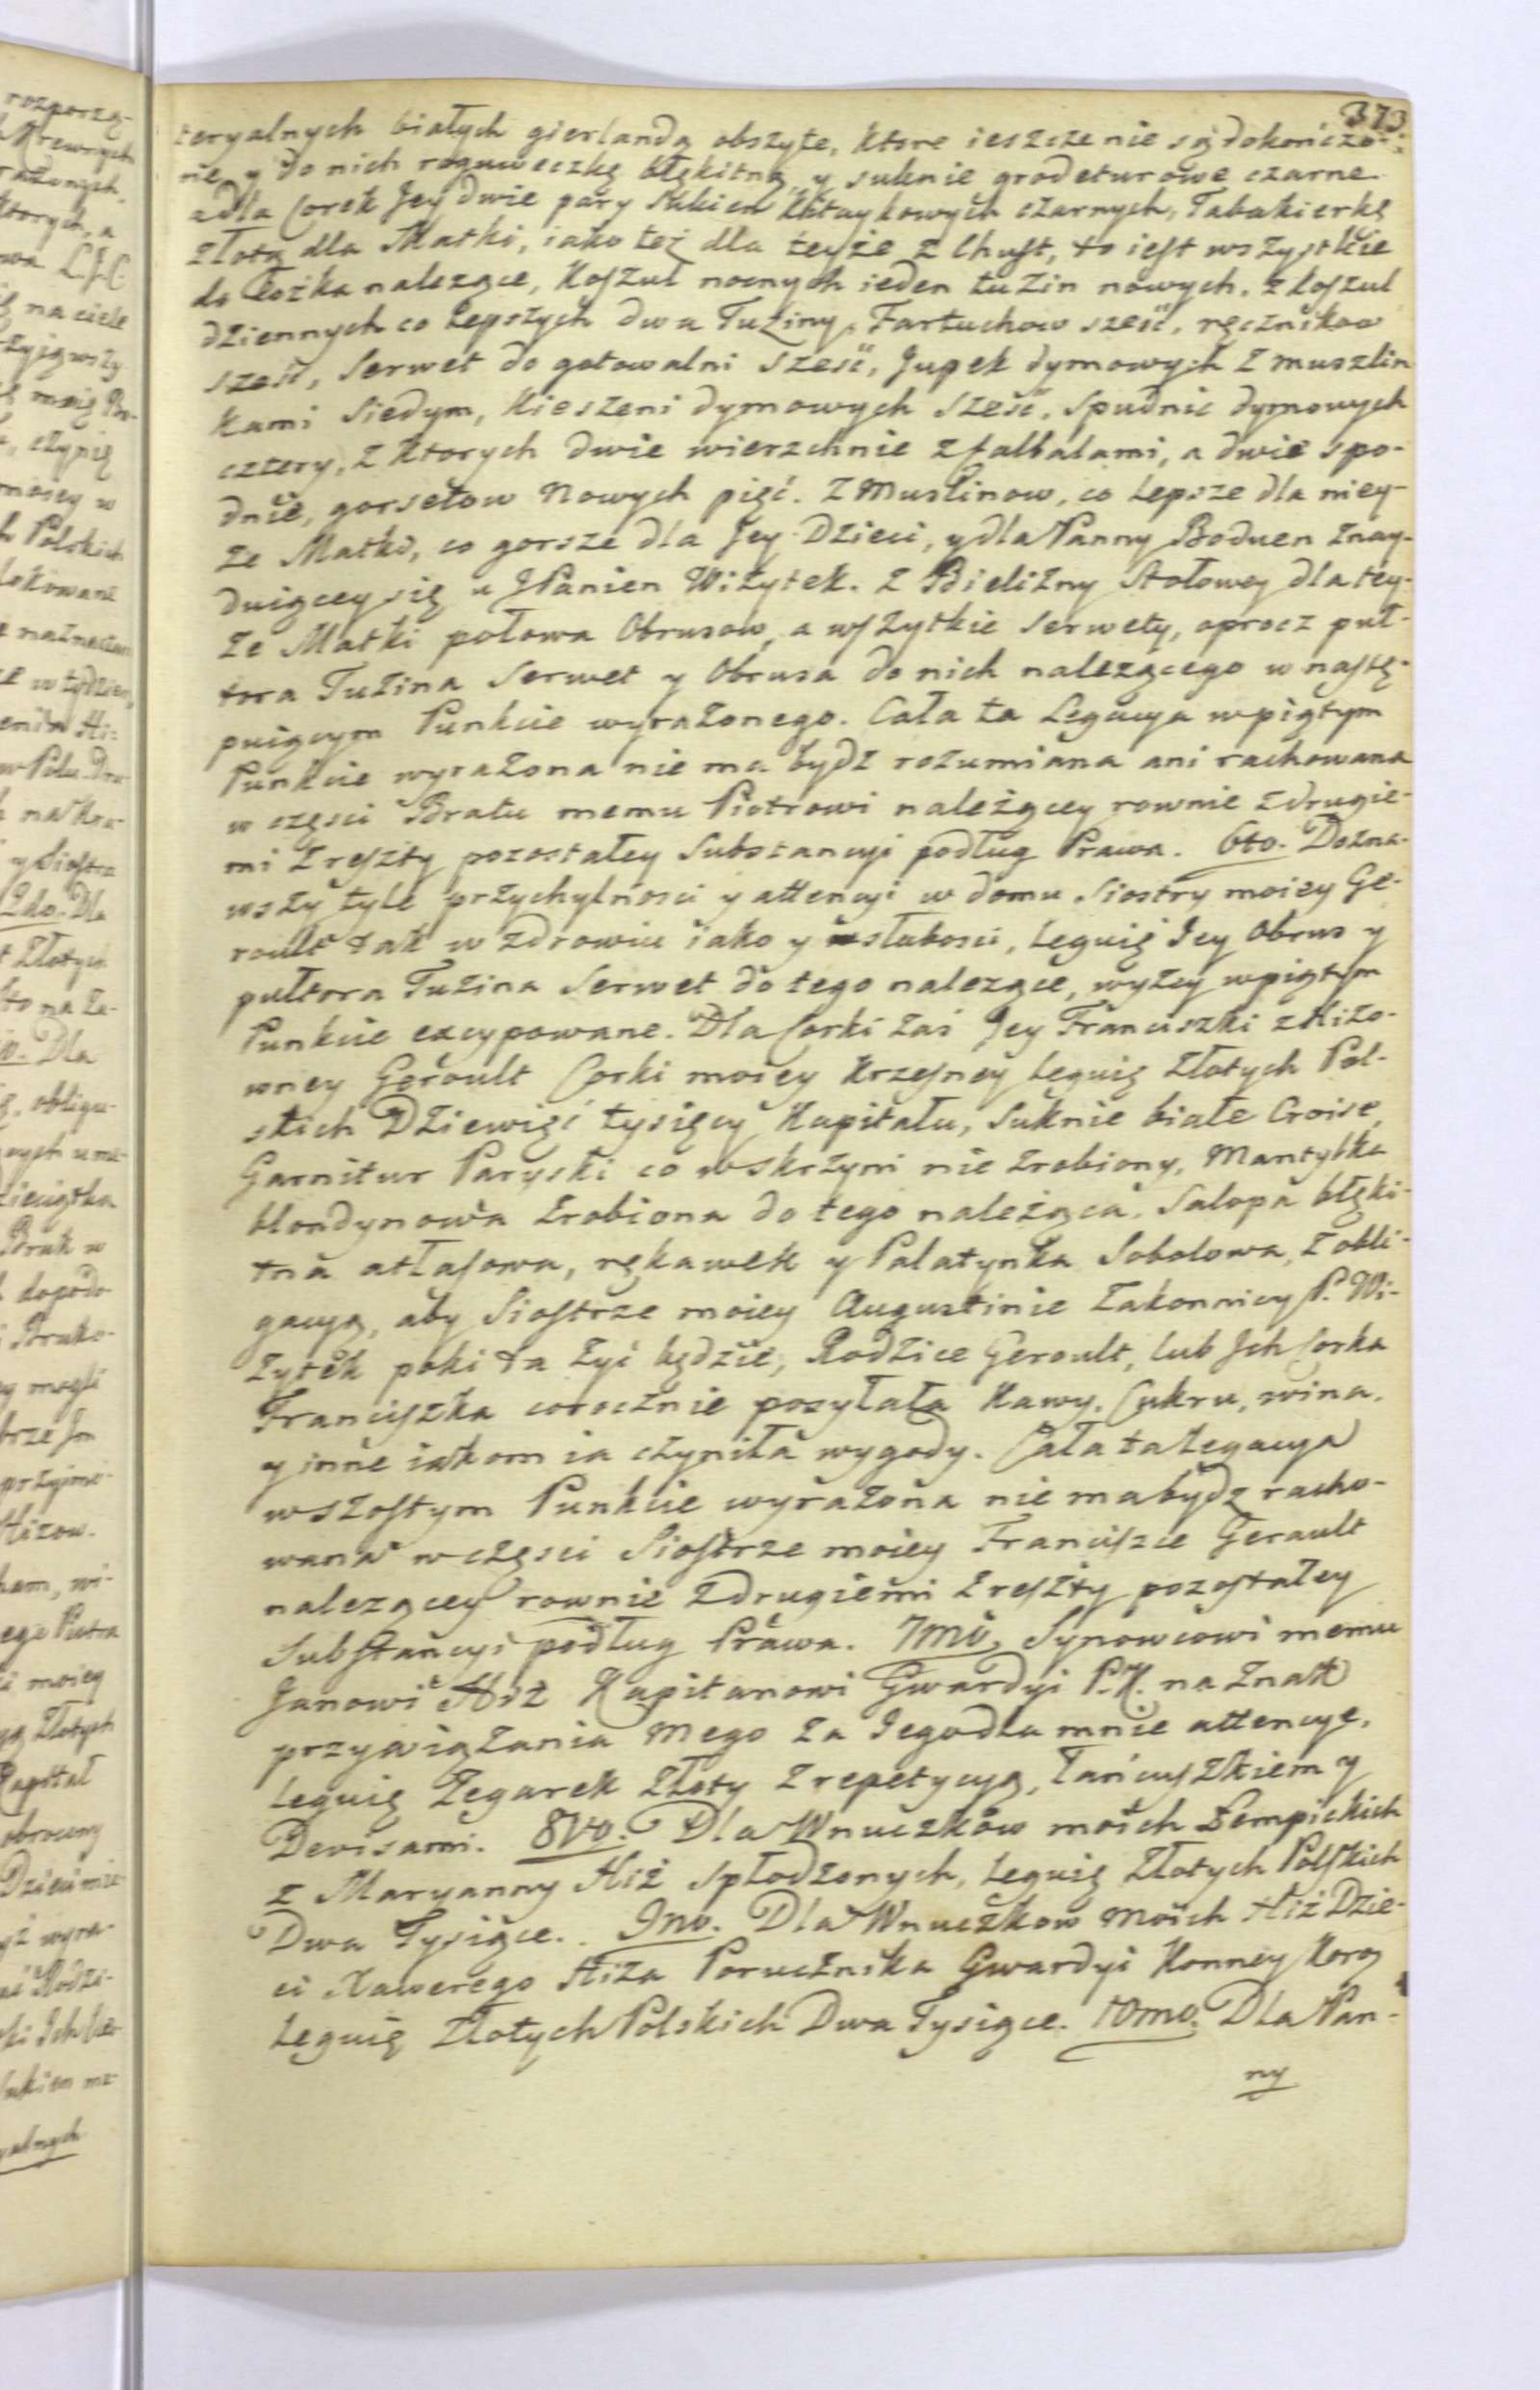 373
teryalnych białych gierlandą obszyte, ktore ieszcze nie są dokończo-
ne, y do nich roguweczkę błękitną, y suknie grodeturowe czarne
a dla Corek Jey dwie pary sukien kitaykowych czarnych, Tabakierkę
złotą dla Matki, iako też dla teyże z Chust, to iest wszystkie
do łożka nalezące, Koszul nocnych ieden tuzin nowych, z koszul
dziennych co lepszych dwa Tuziny, Fartuchow sześć, ręcznikow
sześć, Serwet do gotowalni sześć, Jupek dymowych z muszlin
kami siedym, Kieszeni dymowych sześć, Spudnic dymowych
cztery, z ktorych dwie wierzchnie z falbalami, a dwie spo-
dnie, gorsetow nowych pięć. Z Muslinow, co lepsze dla niey-
że Matki, co gorsze dla Jey Dzieci, y dla Panny Boduen znay-
duiącey się u JPanien Wizytek. Z Bielizny Stołowey dla tey-
że Matki połowa Obrusow, a wszytkie Serwety, oprocz puł-
tora Tuzina Serwet y Obrusa do nich nalezącego w nastę-
puiącym Punkcie wyrażonego. Cała ta Legacya w piątym
Punkcie wyrażona nie ma bydź rozumiana ani rachowana
w części Bratu memu Piotrowi należącey rownie z drugie-
mi z reszty pozostałey Substancyi podług Prawa. 6to. Dozna-
wszy tyle przychylności y attencyi w domu Siostry moiey Ge-
roult tak w zdrowiu iako y słabości, leguię Jey Obrus y
pułtora Tuzina Serwet do tego nalezące, wyżey w piątym
Punkcie excypowane. Dla Corki zaś Jey Franciszki z Hizo-
wney Geroult Corki moiey Krzesney leguię Złotych Pol-
skich Dziewięć tysięcy Kapitału, Suknie białe Croise,
Garnitur Paryski co w skrzyni nie zrobiony, Mantylka
blondynowa zrobiona do tego należąca, Salopa błęki-
tna atłasowa, rękawek y Palatynka Sobolowa, z obli-
gacyą, aby Siostrze moiey Augustinie Zakonnicy P. Wi-
zytek poki ta żyć będzie, Rodzice Geroult, lub Jch Corka
Franciszka corocznie posyłała Kawy, Cukru, wina,
y inne iakom ia czyniła wygody. Cała ta legacya
w szostym Punkcie wyrażona nie ma bydz racho-
wana w części Siostrze moiey Franciszce Gerault
nalezącey rownie z drugiemi z reszty pozostałey
Substancyi podług Prawa. 7mo. Synowcowi memu
Janowi Hiż Kapitanowi Gwardyi P.K. na znak
przywiązania mego za Jego dla mnie attencyę,
leguię Zegarek złoty z repetycyą, łańcuszkiem y
Devisami. 8vo. Dla Wnuczkow moich Łempickich
z Maryanny Hiż spłodzonych, leguię Złotych Polskich
Dwa Tysiące. 9no. Dla Wnuczkow moich Hiż Dzie-
ci Xawerego Hiża Porucznika Gwardyi Konney Koroñ
leguię Złotych Polskich Dwa Tysiące. 10mo. Dla Pan-
ny